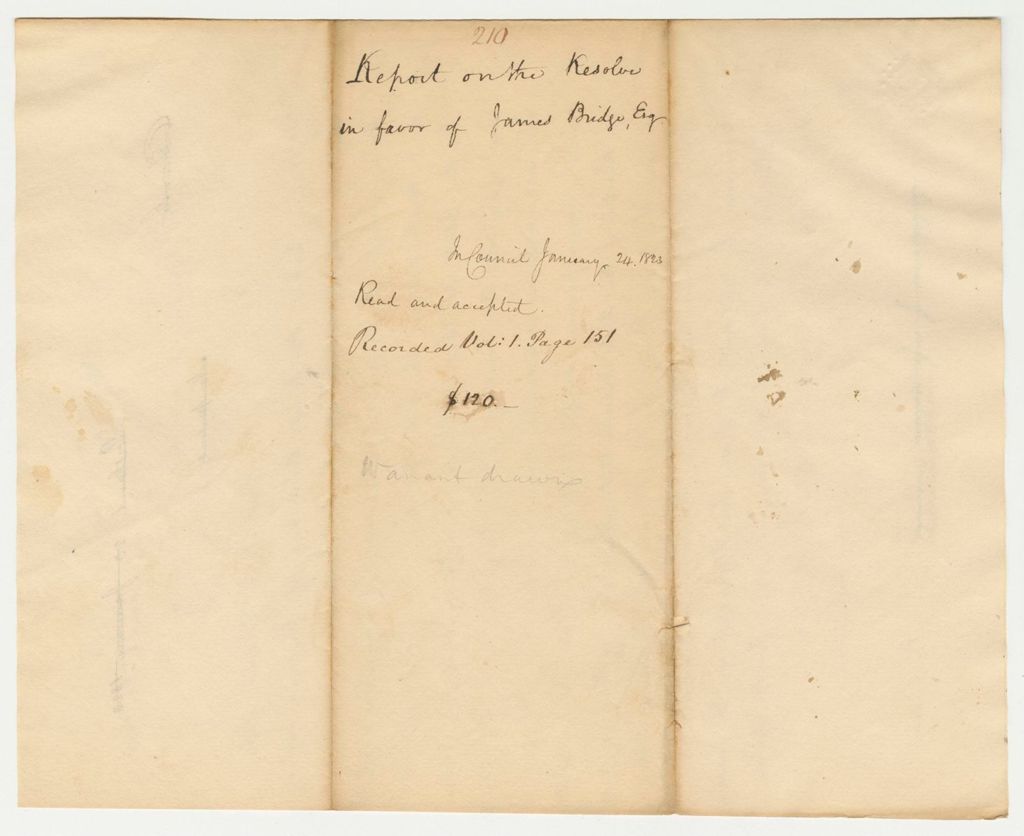 210
Report on the Resolve
in favor of James Bridge, Esq
In Council January 24. 1823
Read and accepted.
Recorded Vol: 1. Page 151
$120.—
Warrant drawn